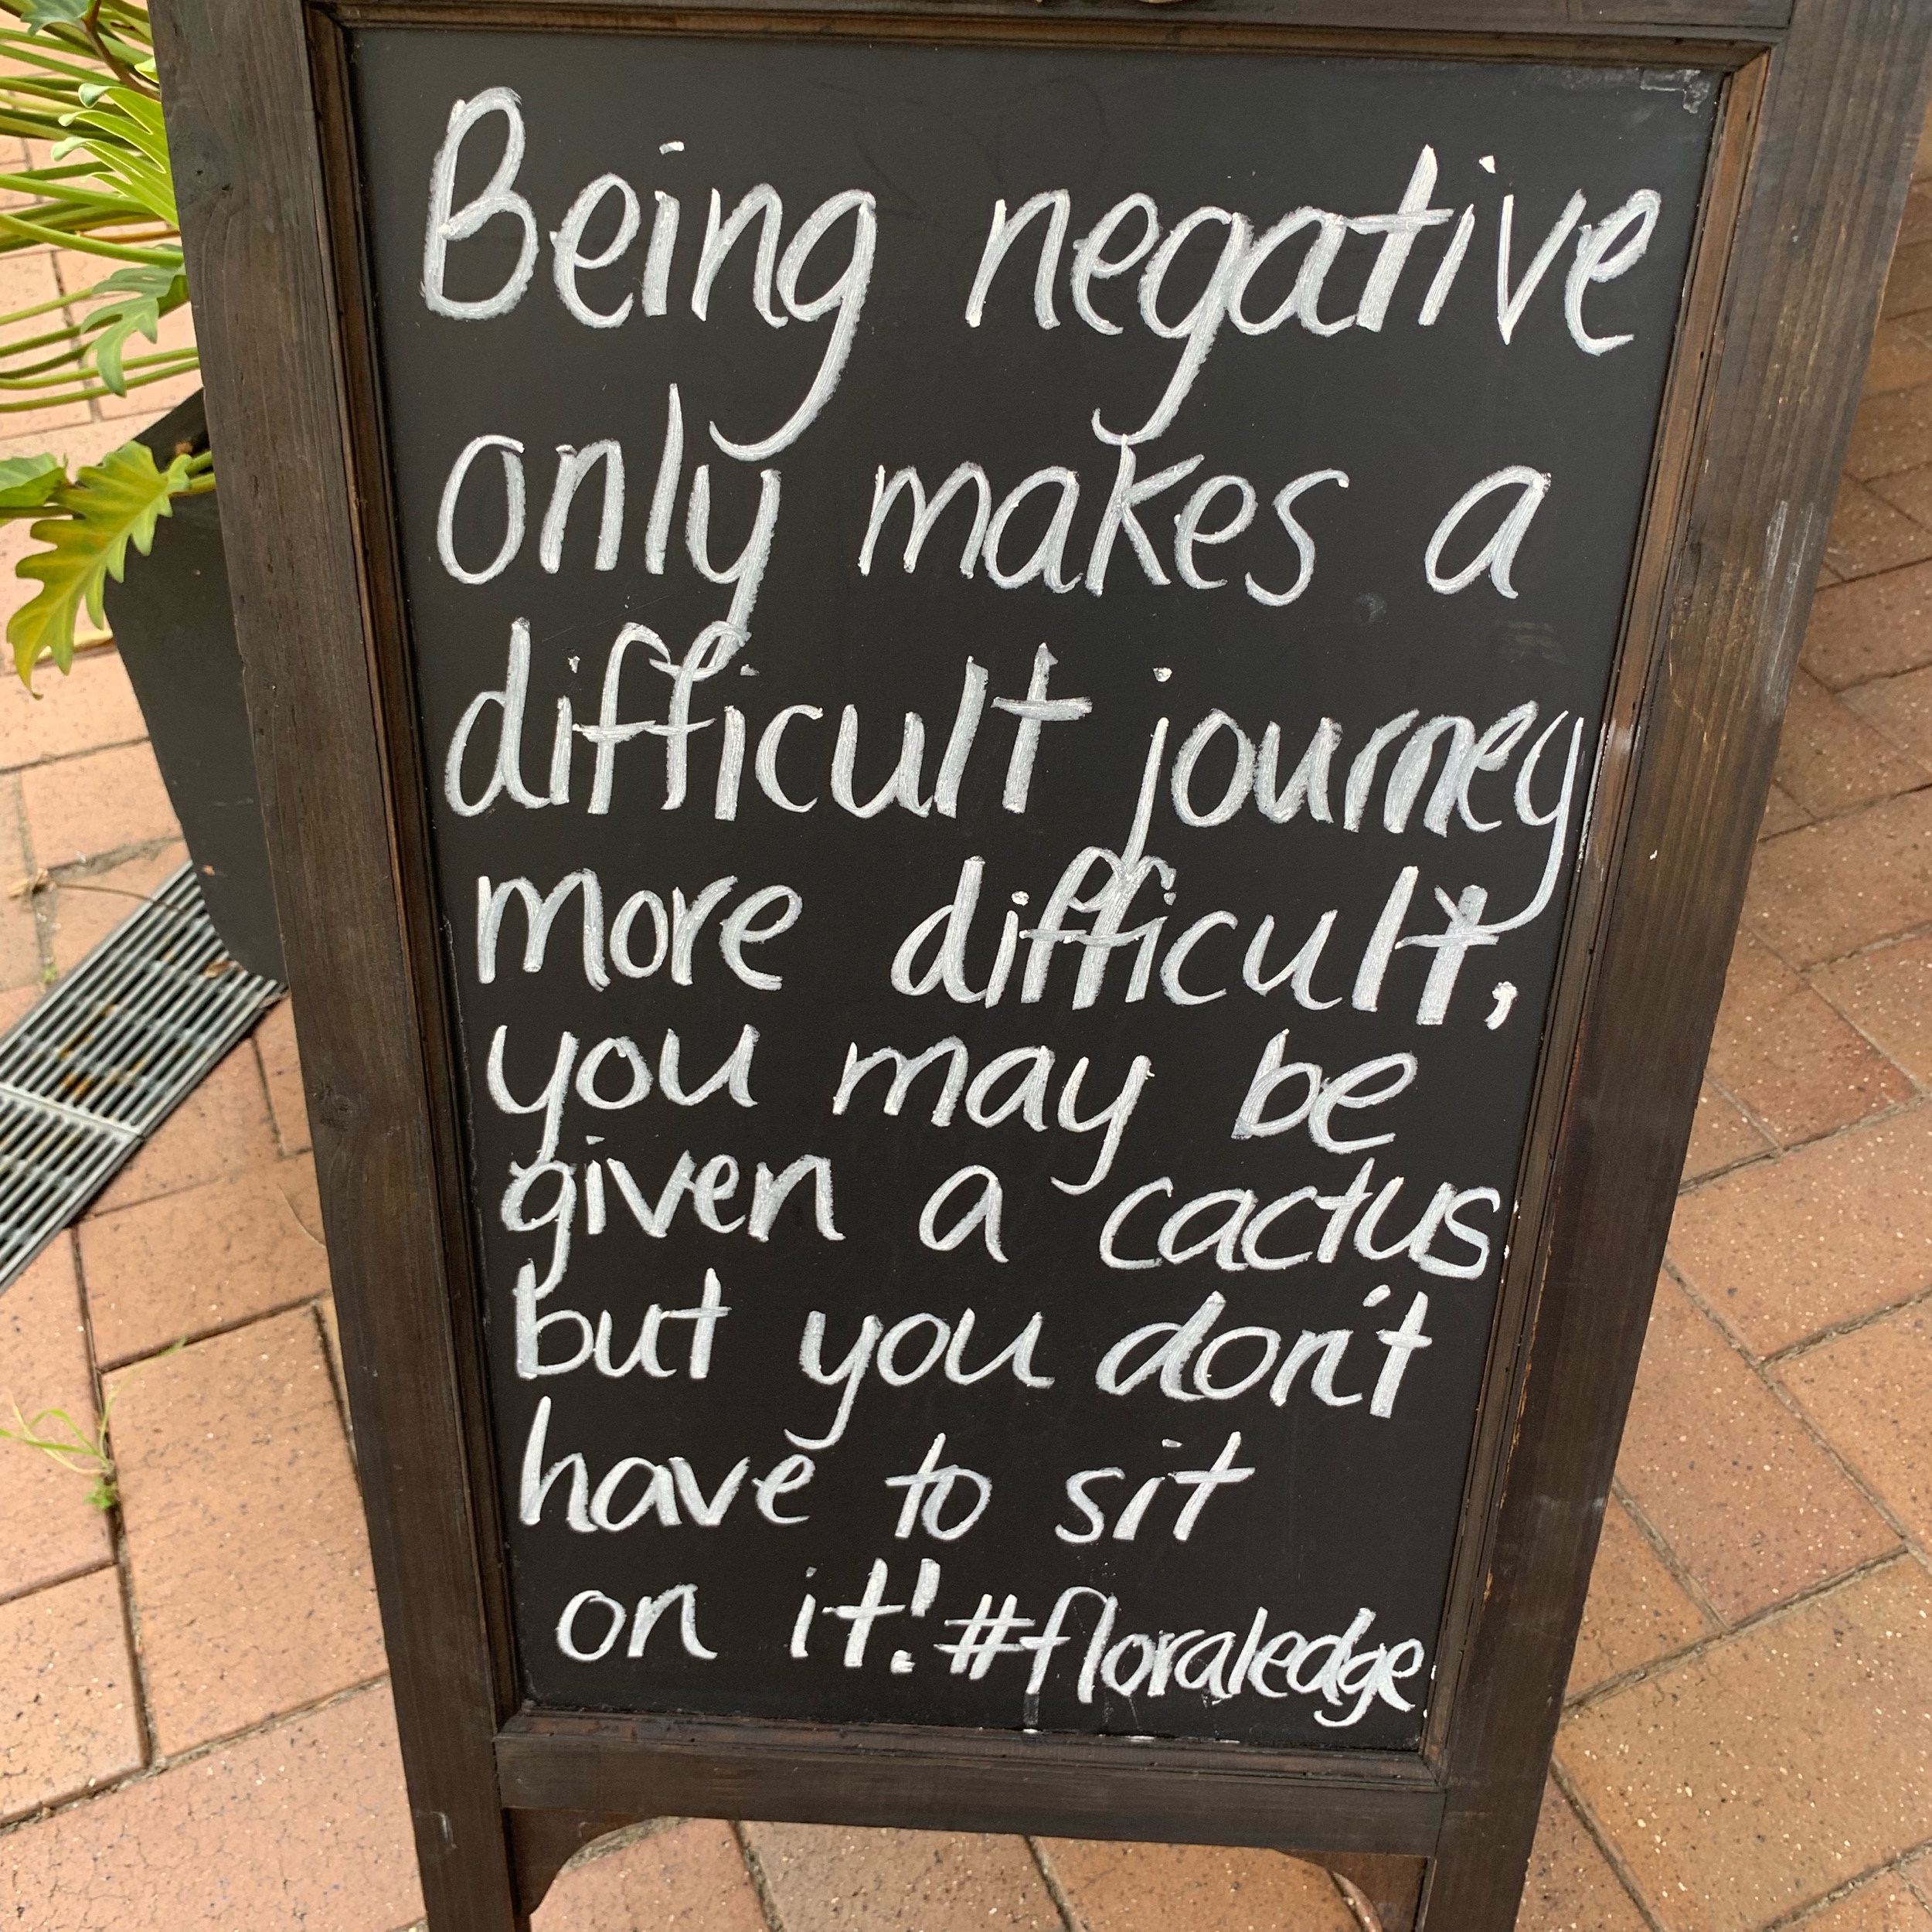 Being negative
only makes a
difficult journey
more difficult,
you may be
given a cactus
but you don't
have to sit
on it! #floraledge